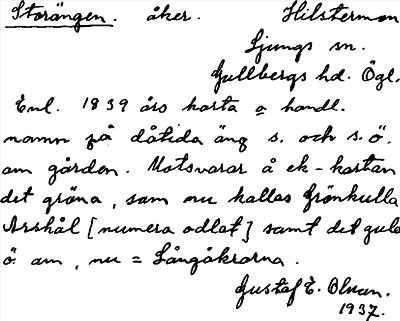 Storängen. åker. Hilsterman
Ljungs sn.
Gullbergs hd. Ögl.
Enl. 1839 års karta o handl.
namn på dåtida äng s. och s.ö.
om gården. Motsvarar å ek-kartan
det gröna, som nu kallas Grönkulla
Arshål [numera odlat] samt det gula
ö. om, nu = Långåkrarna.
Gustaf E. Olson.
1937.